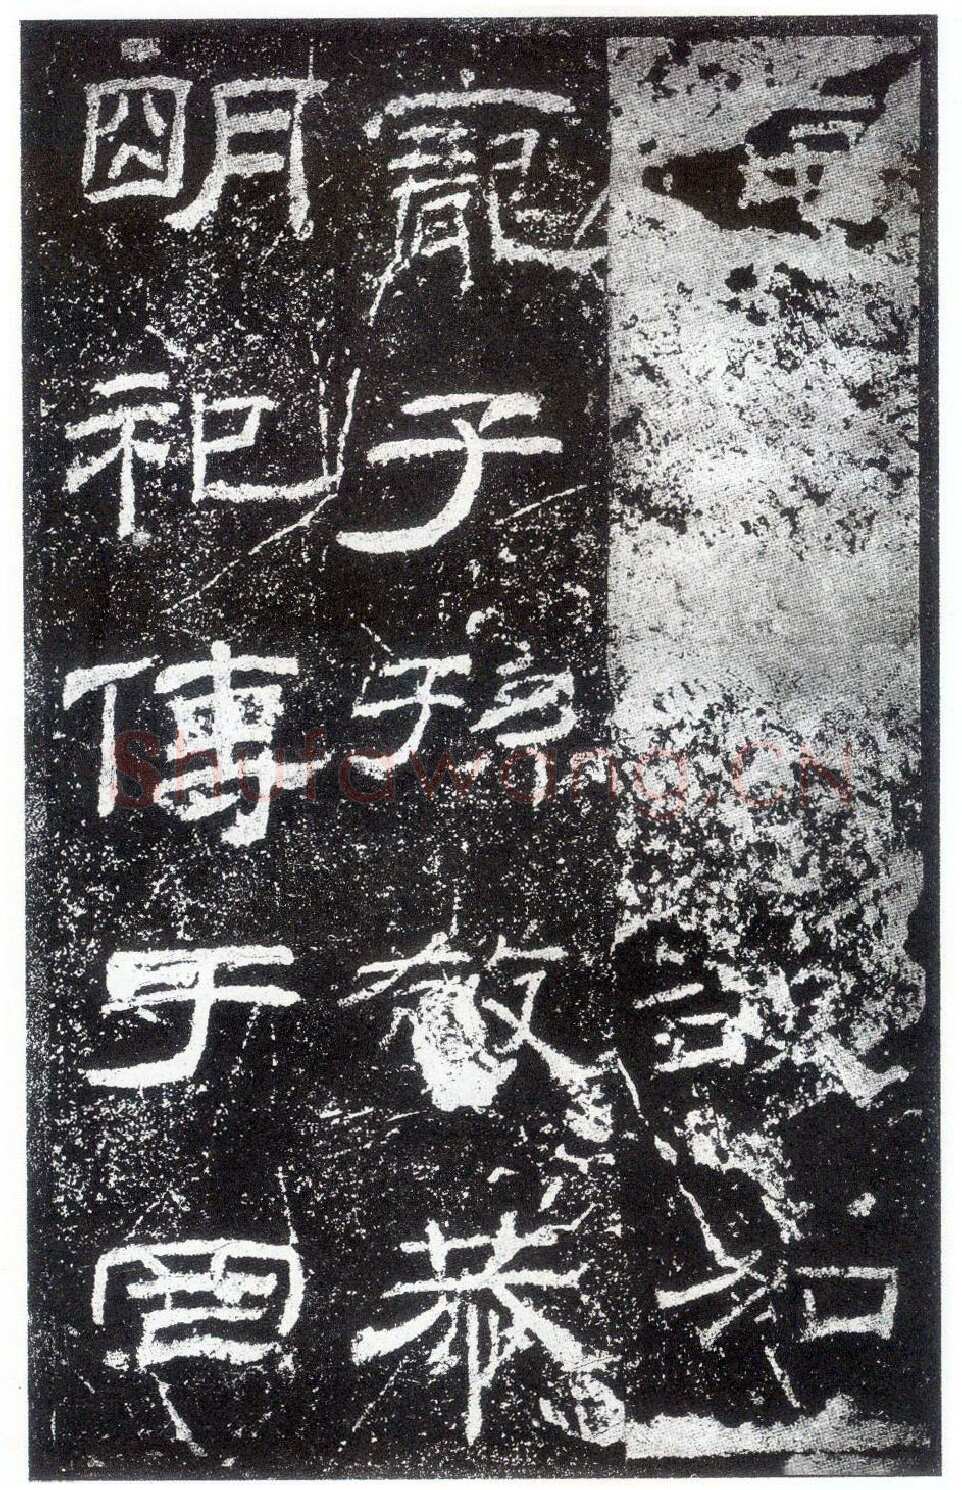 寵子孫敬恭
明祀傳于罔
Shufawang.CN